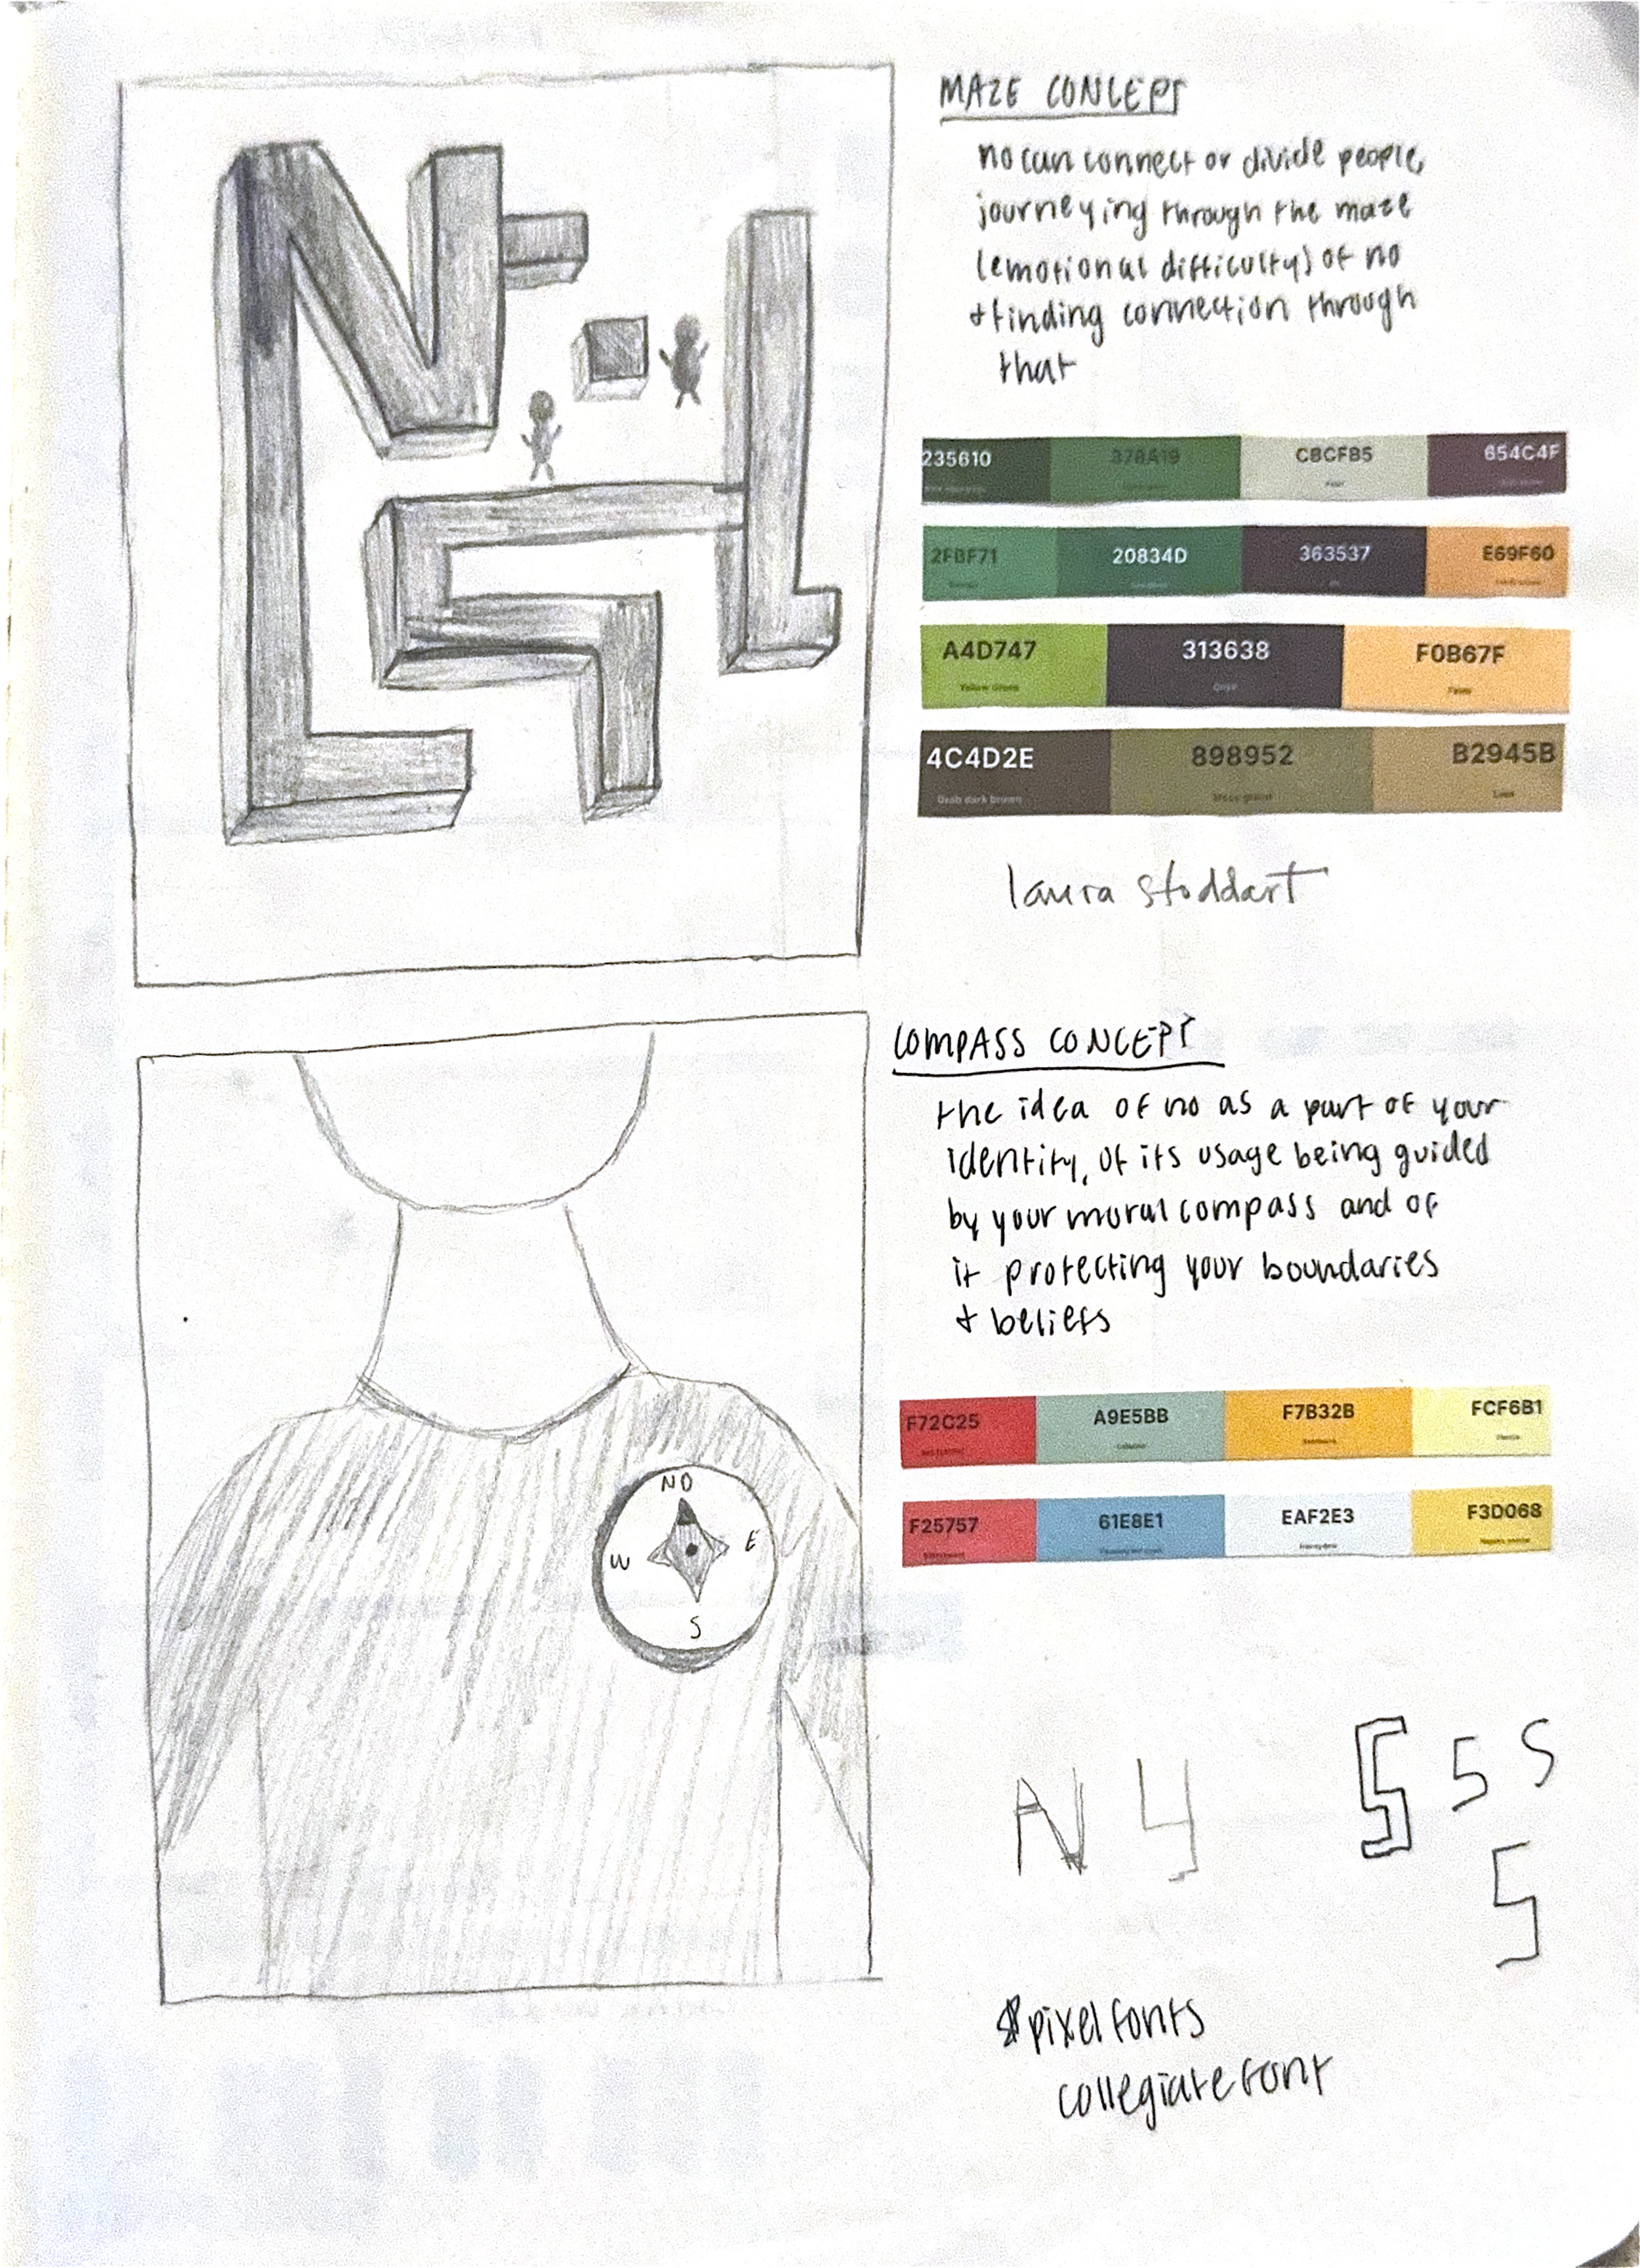 MAZE CONCEPT
no can connect or divide people,
journeying through the maze
(emotional difficulty) of no
+ finding connection through
that
235610 378A19 CBCFB5 654C4F
2FBF71 20834D 363537 E69F60
A4D747 313638 F0B67F
Yellow Green Onyx Fawn
4C4D2E 898952 B2945B
Drab dark brown Moss green Lion
laura stoddart
COMPASS CONCEPT
the idea of no as a part of your
identity, of its usage being guided
by your moral compass and of
it protecting your boundaries
+ beliefs
F72C25 A9E5BB F7B32B FCF6B1
F25757 61E8E1 EAF2E3 F3D068
NO
W E
S
N Y S 5 S
5
pixel fonts
collegiate font